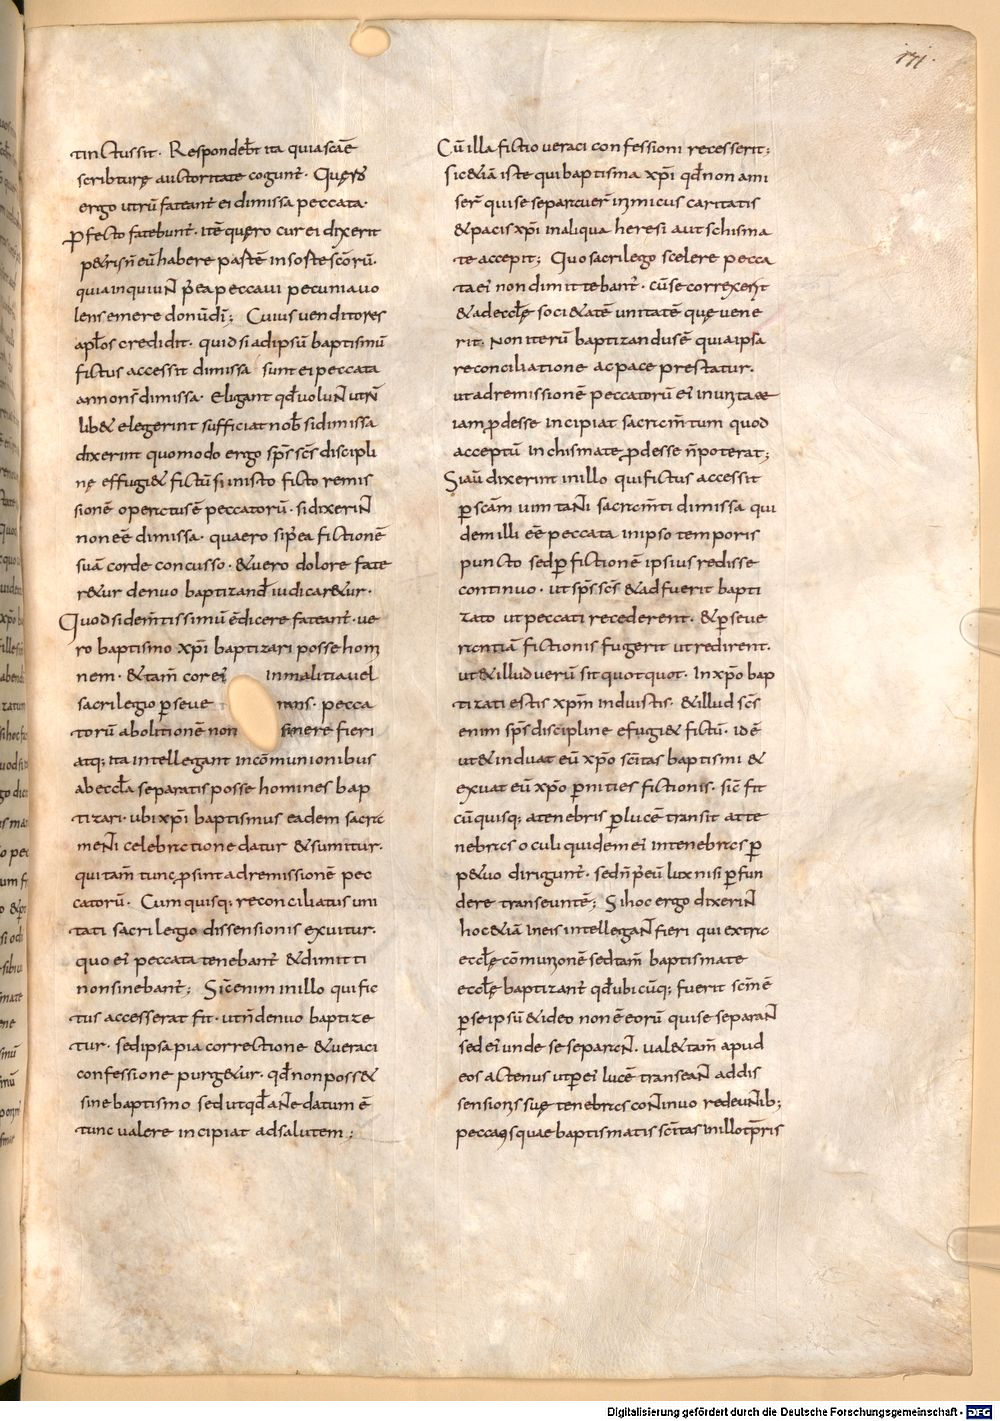 171.
tinctus sit. Respondeb̄t ita quia sc̄aē
scripturę auctoritate cogunt̄. Quęrꝰ
ergo utrū fateant̄ ei dimissa peccata.
ꝓfecto fatebunt̄. itē quęro cur ei dixerit
habere partē in sorte sc̄orū.
quia inquiunt p̄ ea peccavi pecunia vo
lens emere donū dī; Cuius venditores
apl̄os credidit. quid si ad ipsū baptismū
fictus accessit dimissa sunt ei peccata
an non s̄ dimissa. Eligant qđ volunt utrū
lib& elegerint sufficiat nob̄ si dimissa
dixerint quomodo ergo sp̄s sc̄s discipli
nę effugi& fictū si in isto ficto remis
sionē operatus ē peccatorū. si dixerint
non eē dimissa. quaero si p̄ea fictionē
suā corde concusso. & vero dolore fate
r&ur denuo baptizand̄ iudicar&ur.
Quod si dem̄tissimū ē dicere fateant̄. ve
ro baptismo xp̄i baptizari posse homi
nem. & tam̄ cor ei in malitia vel
sacrilegio perseve rans. pecca
torū abolitionē non sinere fieri
atq; ita intellegant in cōmunionibus
ab eccl̄a separatis posse homines bap
tizari. ubi xp̄i baptismus eadem sacra
menti celebratione datur & sumitur.
qui tam̄ tunc ꝓsint ad remissionē pec
catorū. Cum quisq; reconciliatus uni
tati sacrilegio dissensionis exuitur.
quo ei peccata tenebant̄ & dimitti
non sinebant̄; Sic enim in illo qui fic
tus accesserat fit. ut n̄ denuo baptize
tur. sed ipsa pia correctione & veraci
confessione purg&ur. qđ non poss&
sine baptismo sed ut qđ ante datum ē
tunc valere incipiat ad salutem;
Cū illa fictio veraci confessioni recesserit;
sic &iā iste qui baptisma xp̄i qđ non ami
ser̄ qui se separaver̄ inimicus caritatis
& pacis xp̄i in aliqua heresi aut schisma
te accepit; Quo sacrilego scelere pecca
ta ei non dimittebant̄. cū se correxerit
& ad eccl̄ę soci&atē unitatē quę vene
rit. non iterū baptizandus ē quia ipsa
reconciliatione ac pace prestatur.
ut ad remissionē peccatorū ei in unitate
iam ꝓdesse incipiat sacram̄tum quod
acceptū in chismate ꝓdesse n̄ poterat;
Si aū dixerint in illo qui fictus accessit
ꝑ sc̄am vim tanti sacram̄ti dimissa qui
dem illi eē peccata in ipso temporis
puncto sed ꝑ fictionē ipsius redisse
continuo. ut sp̄s sc̄s & adfuerit bapti
zato ut peccati recederent. & ꝑseve
rantiā fictionis fugerit ut redirent.
ut & illud verū sit quotquot. In xp̄o bap
tizati estis xp̄m induistis. & illud sc̄s
enim sp̄s discipline efugi& fictū. id ē
ut & induat eū xp̄o sc̄itas baptismi &
exuat eū xp̄o ꝑnities fictionis. sic̄ fit
cū quisq; a tenebris ꝑ lucē transit ad te
nebras oculi quidem ei in tenebras ꝑ
p&uo dirigunt̄. sed n̄ p̄ eū lux nisi ꝑfun
dere transeuntē; Si hoc ergo dixerint
hoc &iā in eis intellegant fieri qui extra
eccl̄ę cōmunionē sed tam̄ baptismate
eccl̄ę baptizant̄ qđ ubicūq; fuerit sc̄m ē
ꝑ se ipsū & ideo non ē eorū qui se separant
sed ei unde se separant. val& tam̄ apud
eos actenus ut per ei lucē transeant ad dis
sensionis suę tenebras continuo redeuntib;
peccatis quae baptismatis sc̄itas in illo tp̄ris